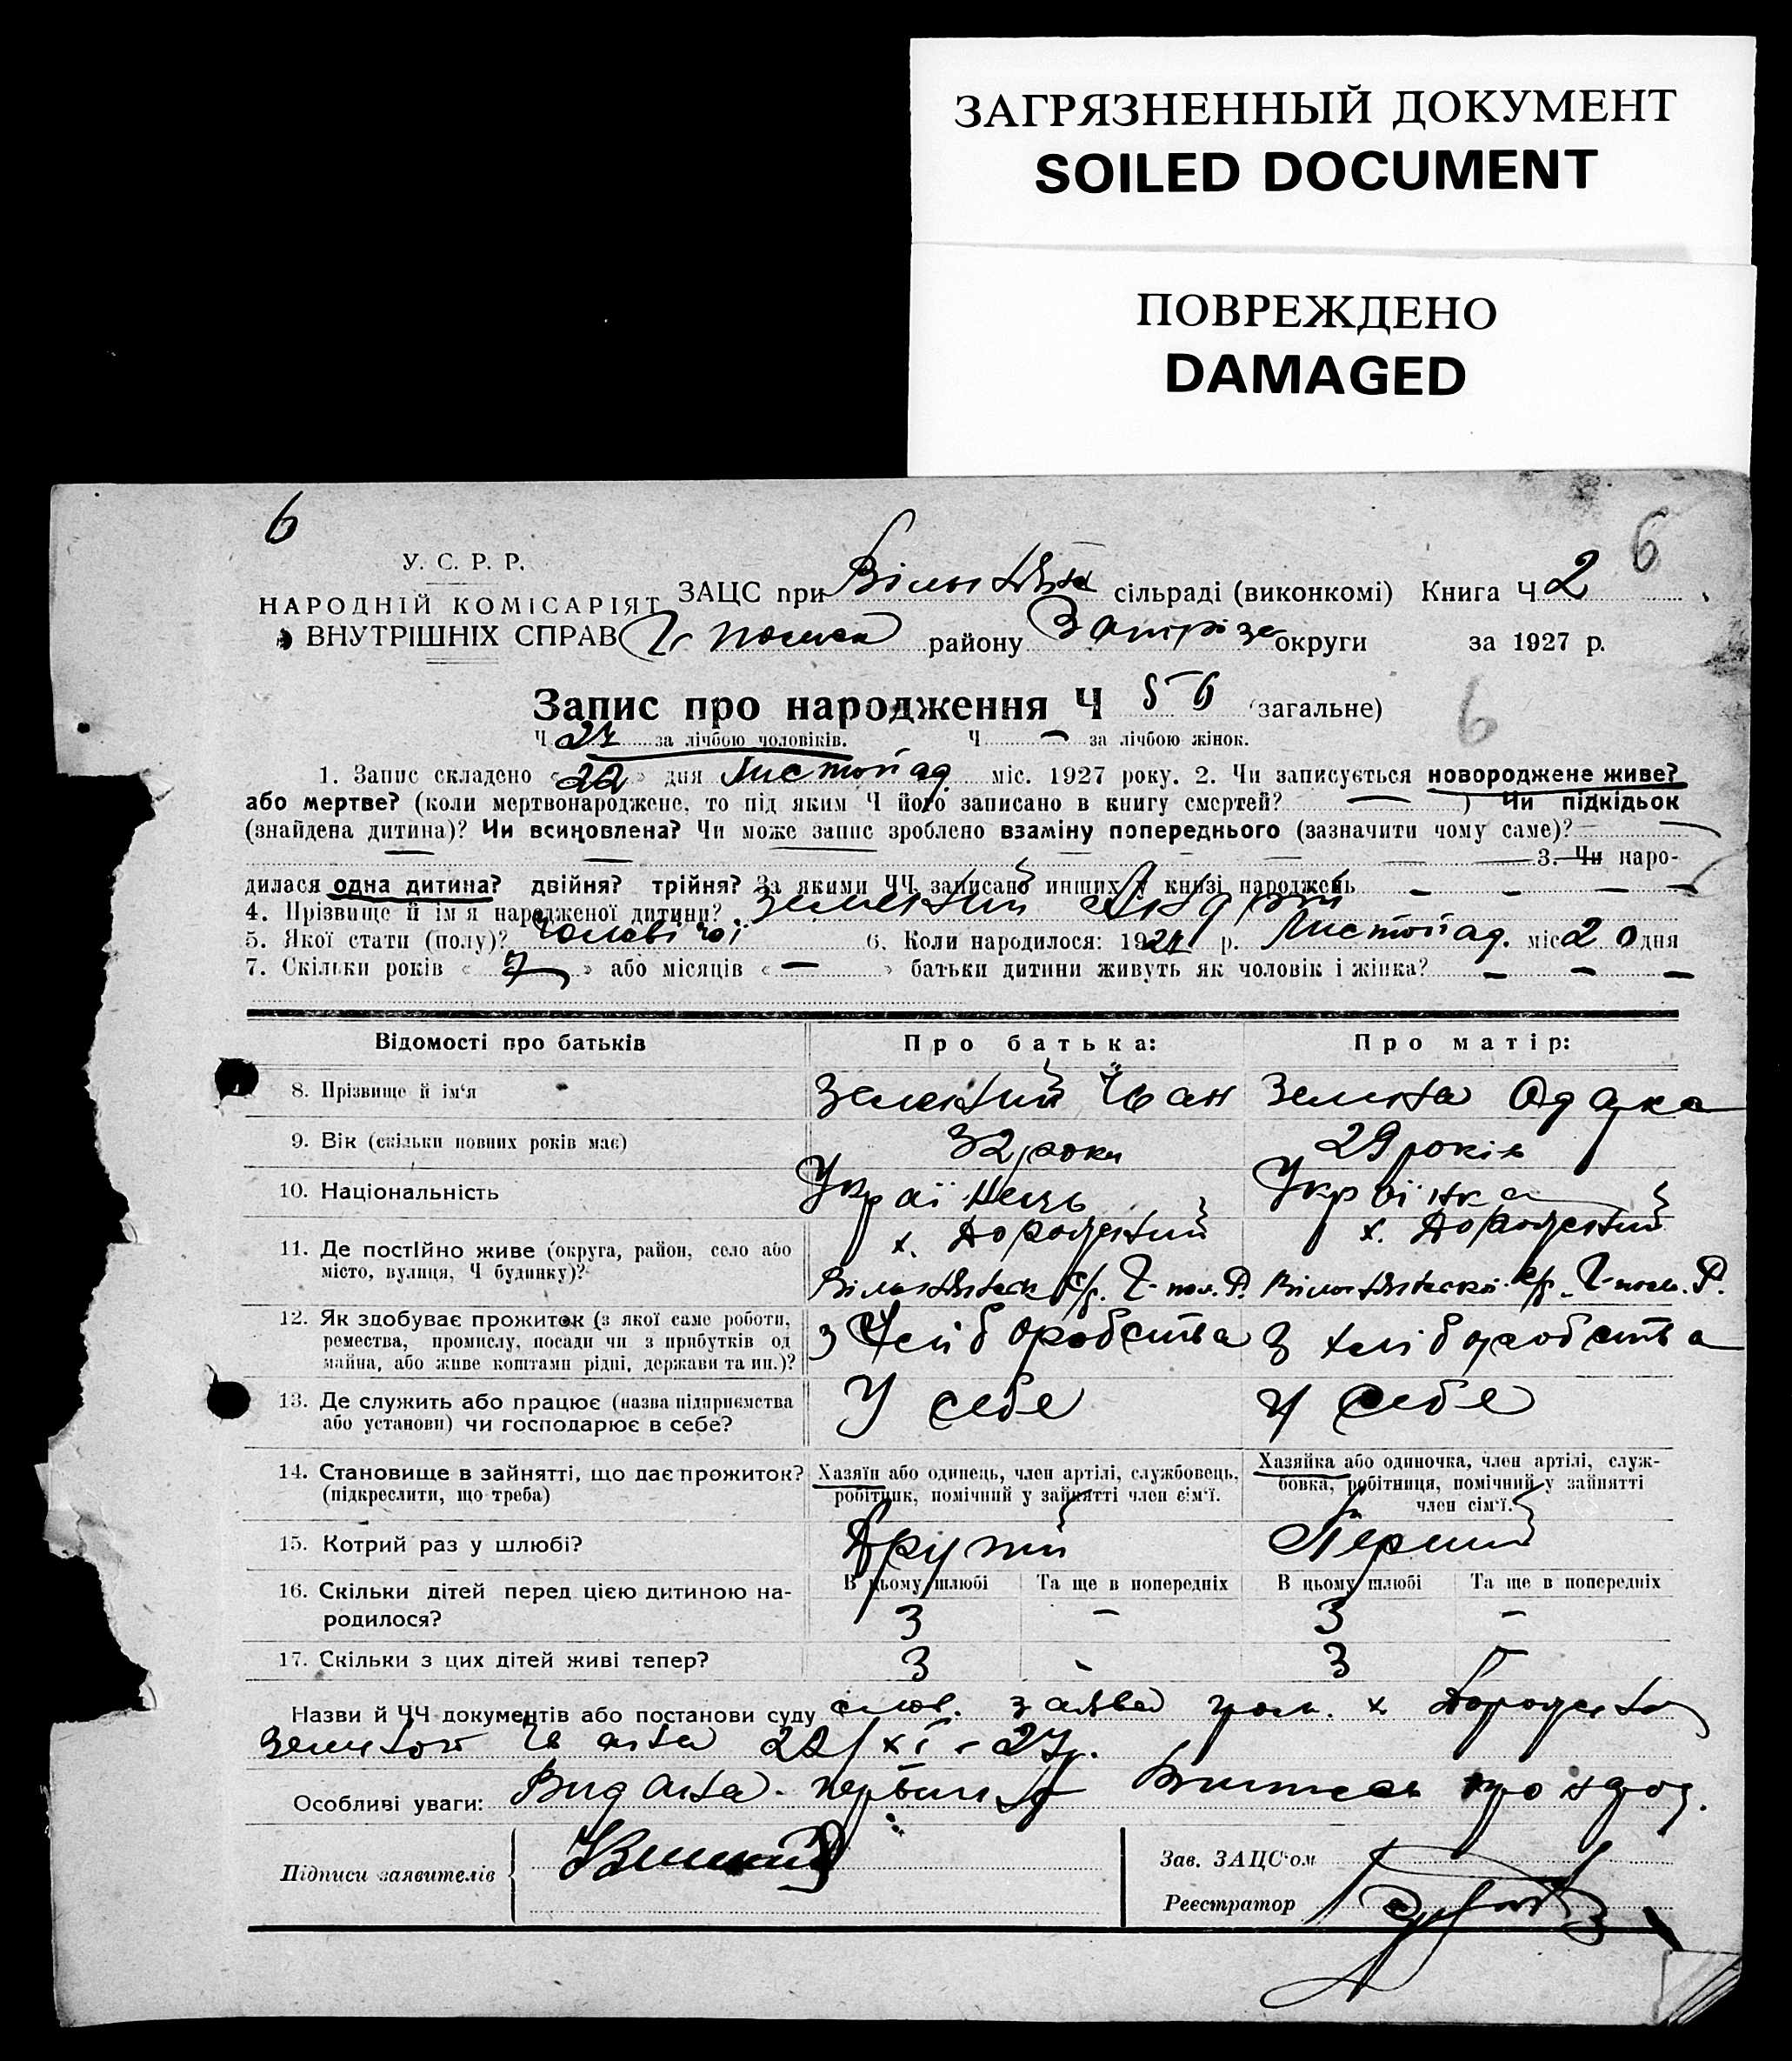 ЗАГРЯЗНЕННЫЙ ДОКУМЕНТ
SOILED DOCUMENT
ПОВРЕЖДЕНО
DAMAGED
6
6
У. С. Р. Р.
НАРОДНІЙ КОМІСАРІЯТ
ВНУТРІШНІХ СПРАВ
ЗАЦС при сільраді (виконкомі) Книга Ч 2
району округи за 1927 р.
Запис про народження Ч 56 (загальне)
6
Ч 27 за лічбою чоловіків. Ч — за лічбою жінок.
1. Запис складено «22» дня Листопад міс. 1927 року. 2. Чи записується новороджене живе?
або мертве? (коли мертвонароджене, то під яким Ч його записано в книгу смертей? — ) Чи підкідьок
(знайдена дитина)? Чи всиновлена? Чи може запис зроблено взаміну попереднього (зазначити чому саме)?
3. Чи наро-
дилася одна дитина? двійня? трійня? За якими ЧЧ записано инших у книзі народжень — — — —
4. Прізвище й ім'я народженої дитини?
5. Якої статі (полу)? Чоловічої 6. Коли народилося: 1927 р. Листопад. міс 20 дня
7. Скільки років « 7 » або місяців « — » батьки дитини живуть як чоловік і жінка? — — —
Відомості про батьків Про батька: Про матір:
8. Прізвище й ім'я Іван
9. Вік (скільки повних років має) 32 роки 29 років
10. Національність Українець Українка
11. Де постійно живе (округа, район, село або
місто, вулиця, Ч будинку)?
12. Як здобуває прожиток (з якої саме роботи,
ремества, промислу, посади чи з прибутків од
майна, або живе коштами рідні, держави та ин.)? з хліборобства з хліборобства
13. Де служить або працює (назва підприємства
або установи) чи господарює в себе? У себе У себе
14. Становище в зайнятті, що дає прожиток?
(підкреслити, що треба)
Хазяїн або одинець, член артілі, службовець,
робітник, помічний у зайнятті член сім'ї.
Хазяйка або одиночка, член артілі, служ-
бовка, робітниця, помічний у зайнятті
член сім'ї.
15. Котрий раз у шлюбі? Другий Перший
16. Скільки дітей перед цією дитиною на-
родилося?
В цьому шлюбі Та ще в попередніх В цьому шлюбі Та ще в попередніх
3 — 3 —
17. Скільки з цих дітей живі тепер? 3 - 3 —
Назви й ЧЧ документів або постанови суду слов. заява гром. х.
Івана 22/XI - 27 р.
Особливі уваги: Видана про народ.
Підписи заявителів
Зав. ЗАЦС'ом
Реєстратор